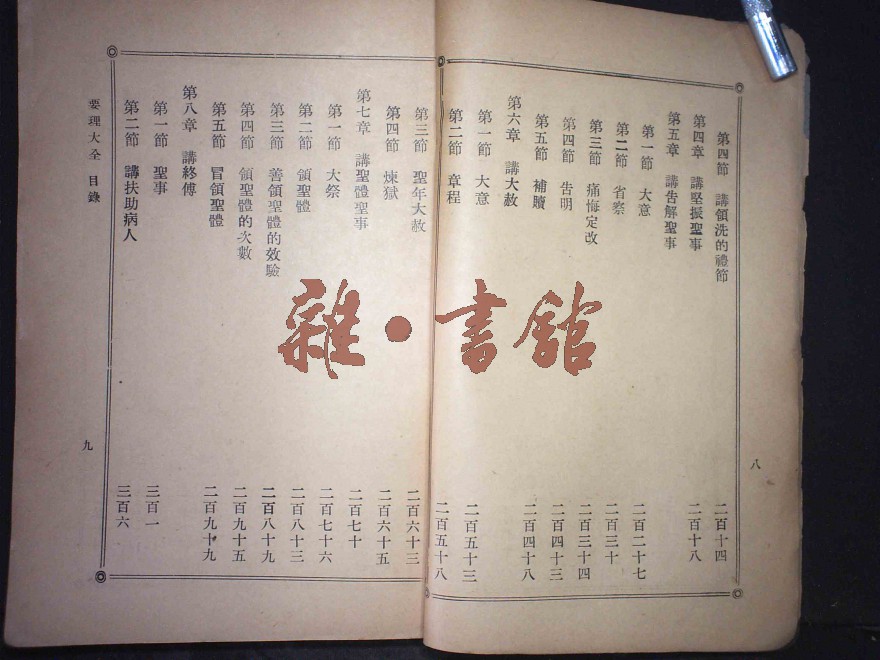 第四節 講領洗的禮節 二百十四
第四章 講堅振聖事 二百十八
第五章 講告解聖事
第一節 大意 二百二十七
第二節 省察 二百三十
第三節 痛悔定改 二百三十四
第四節 告明 二百四十三
第五節 補贖 二百四十八
第六章 講大赦
第一節 大意 二百五十三
第二節 章程 二百五十八
八
第三節 聖年大赦 二百六十三
第四節 煉獄 二百六十五
第七章 講聖體聖事 二百七十
第一節 大祭 二百七十六
第二節 領聖體 二百八十三
第三節 善領聖體的效驗 二百八十九
第四節 領聖體的次數 二百九十五
第五節 冒領聖體 二百九十九
第八章 講終傅
第一節 聖事 三百一
第二節 講扶助病人 三百六
要理大全 目錄 九
雜·書館